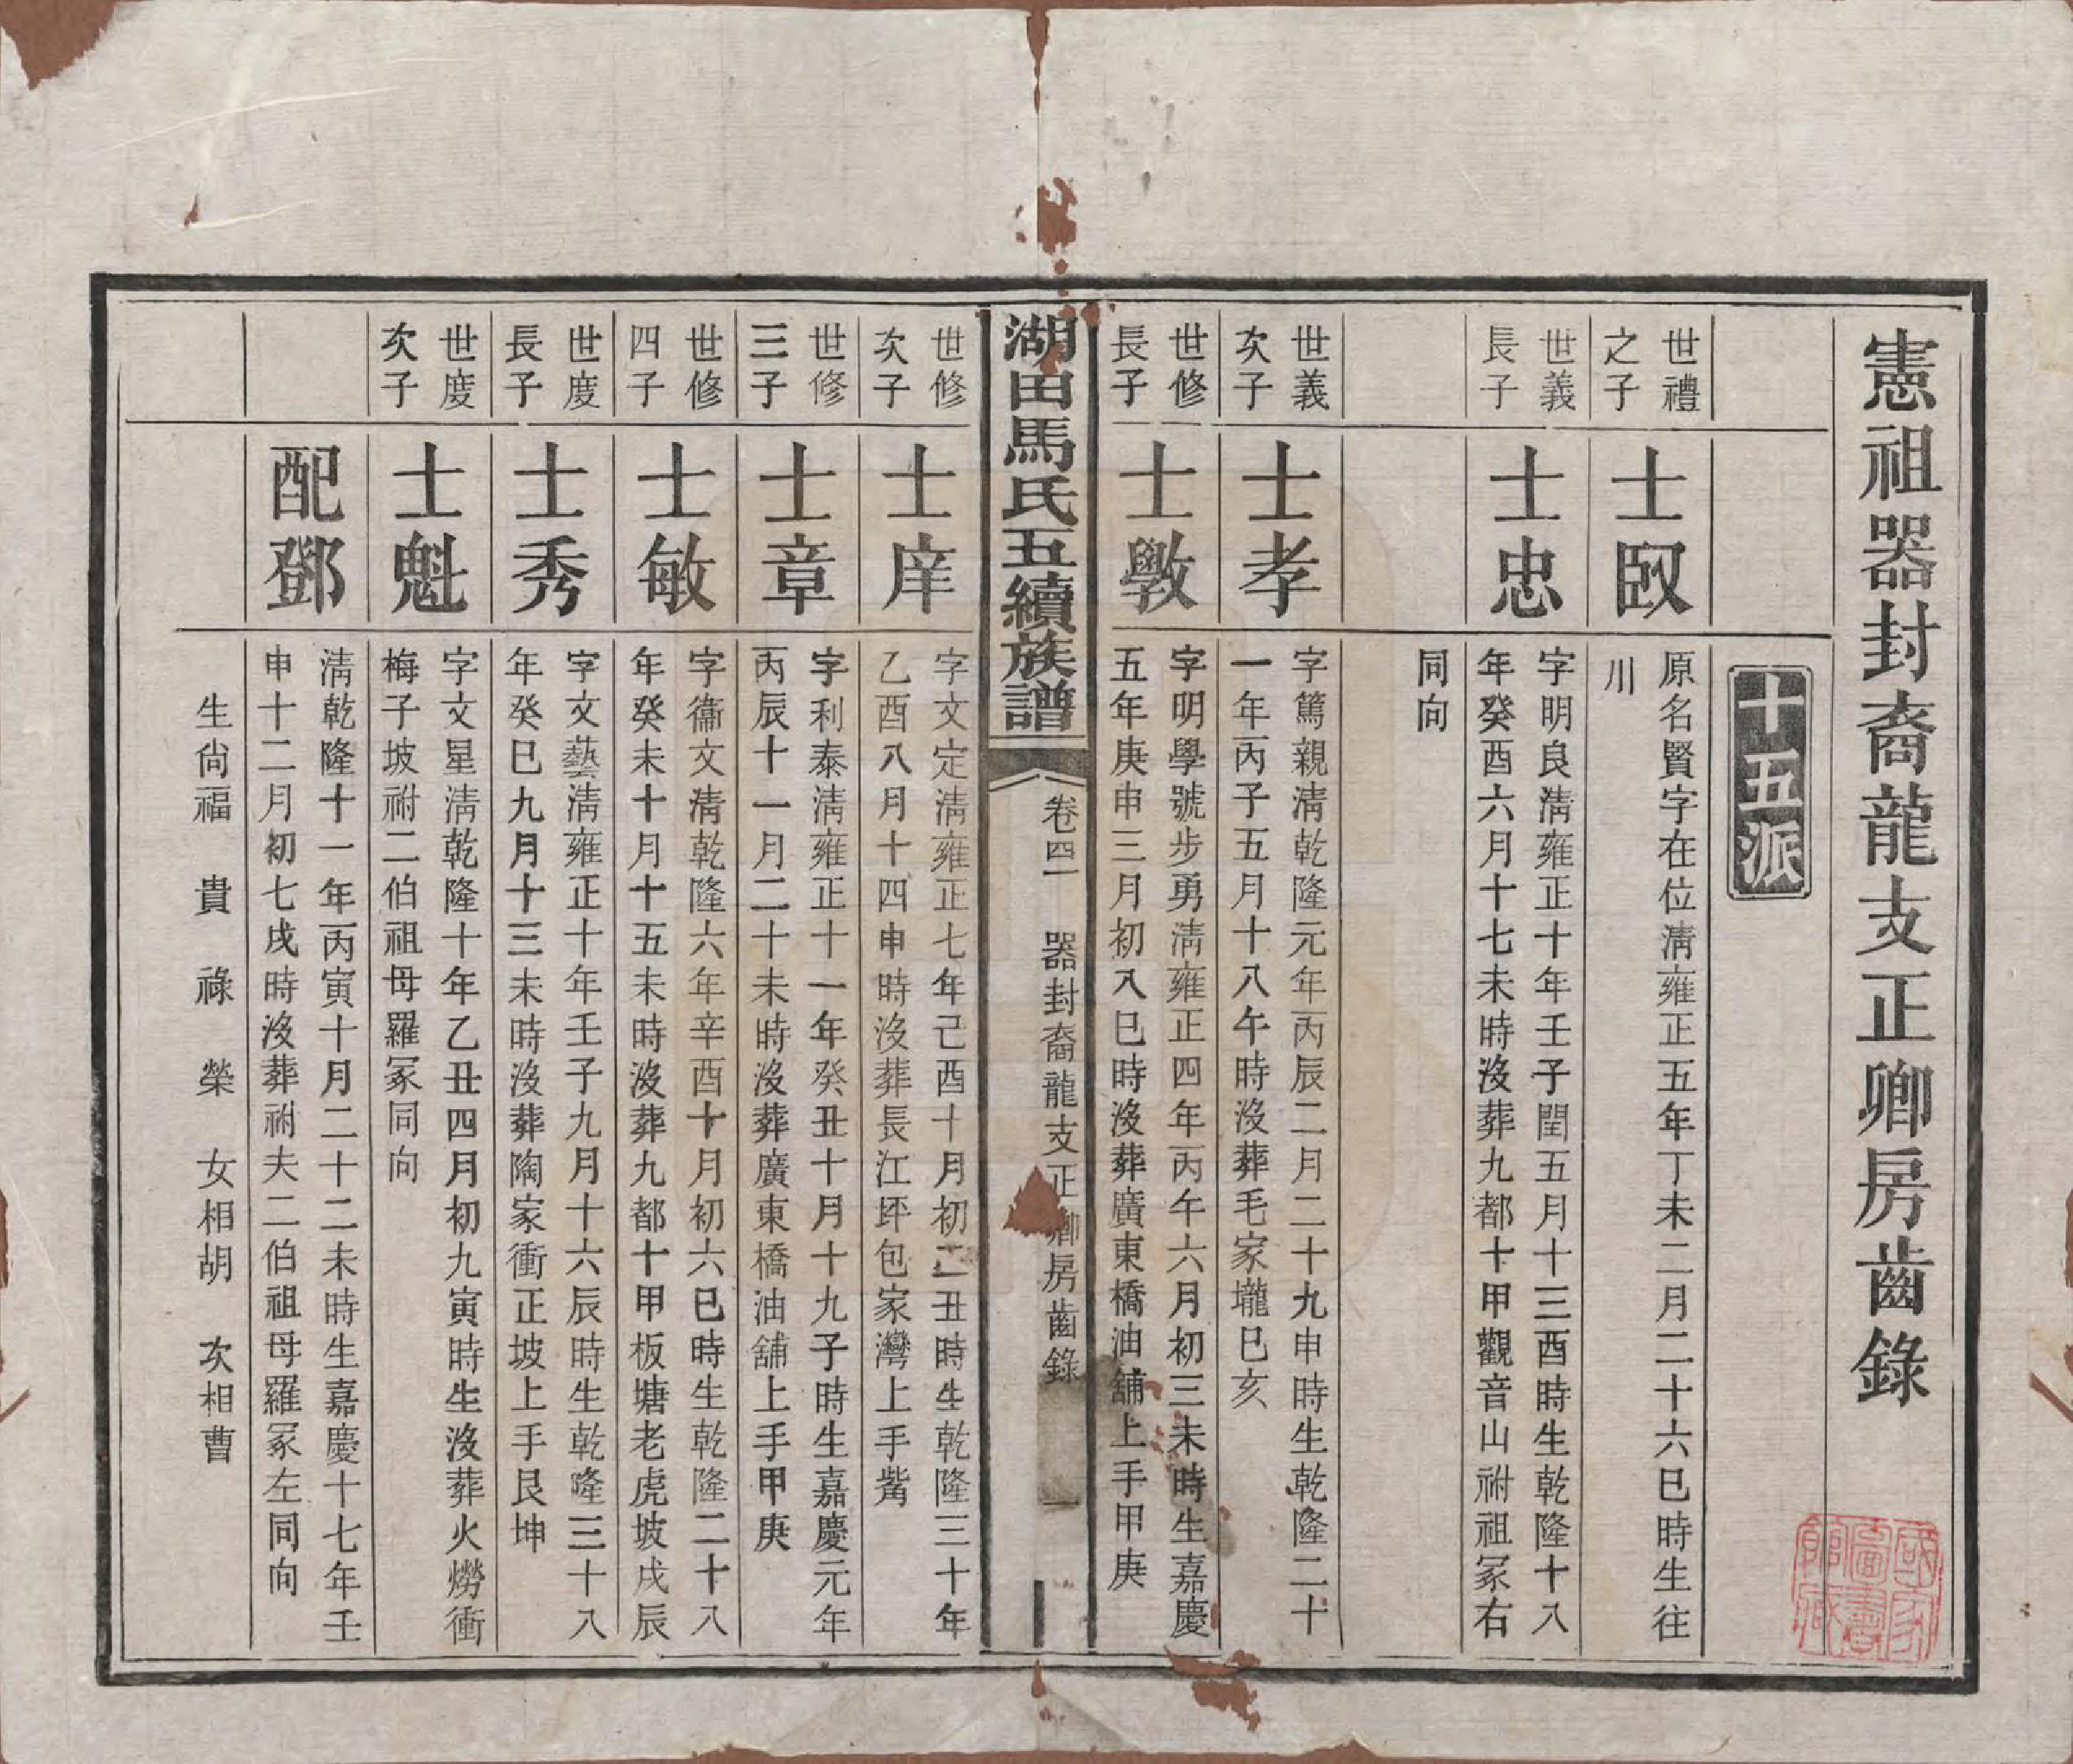 憲祖器封裔龍支正卿房齒錄
十五派
世禮
之子
士臤
原名賢字在位淸雍正五年丁未二月二十六巳時生往
川
世義
長子
士忠
字明良淸雍正十年壬子閏五月十三酉時生乾隆十八
年癸酉六月十七未時沒葬九都十甲觀音山祔祖冢右
同向
世義
次子
士孝
字篤親淸乾隆元年丙辰二月二十九申時生乾隆二十
一年丙子五月十八午時沒葬毛家壠巳亥
世修
長子
士斆
字明學號步勇淸雍正四年丙午六月初三未時生嘉慶
五年庚申三月初八巳時沒葬廣東橋油舖上手甲庚
湖田馬氏五續族譜
卷四一 器封裔龍支正卿房齒錄 一
世修
次子
士庠
字文定淸雍正七年己酉十月初二丑時生乾隆三十年
乙酉八月十四申時沒葬長江坪包家灣上手觜
世修
三子
士章
字利泰淸雍正十一年癸丑十月十九子時生嘉慶元年
丙辰十一月二十未時沒葬廣東橋油舖上手甲庚
世修
四子
士敏
字徧文淸乾隆六年辛酉十月初六巳時生乾隆二十八
年癸未十月十五未時沒葬九都十甲板塘老虎坡戌辰
世度
長子
士秀
字文藝淸雍正十年壬子九月十六辰時生乾隆三十八
年癸巳九月十三未時沒葬陶家衝正坡上手艮坤
世度
次子
士魁
字文星淸乾隆十年乙丑四月初九寅時生沒葬火燐衝
梅子坡祔二伯祖母羅冢同向
配鄧
淸乾隆十一年丙寅十月二十二未時生嘉慶十七年壬
申十二月初七戌時沒葬祔夫二伯祖母羅冢左同向
生尙福 貴 祿 榮 女相胡 次相曹
國家
圖書
館藏